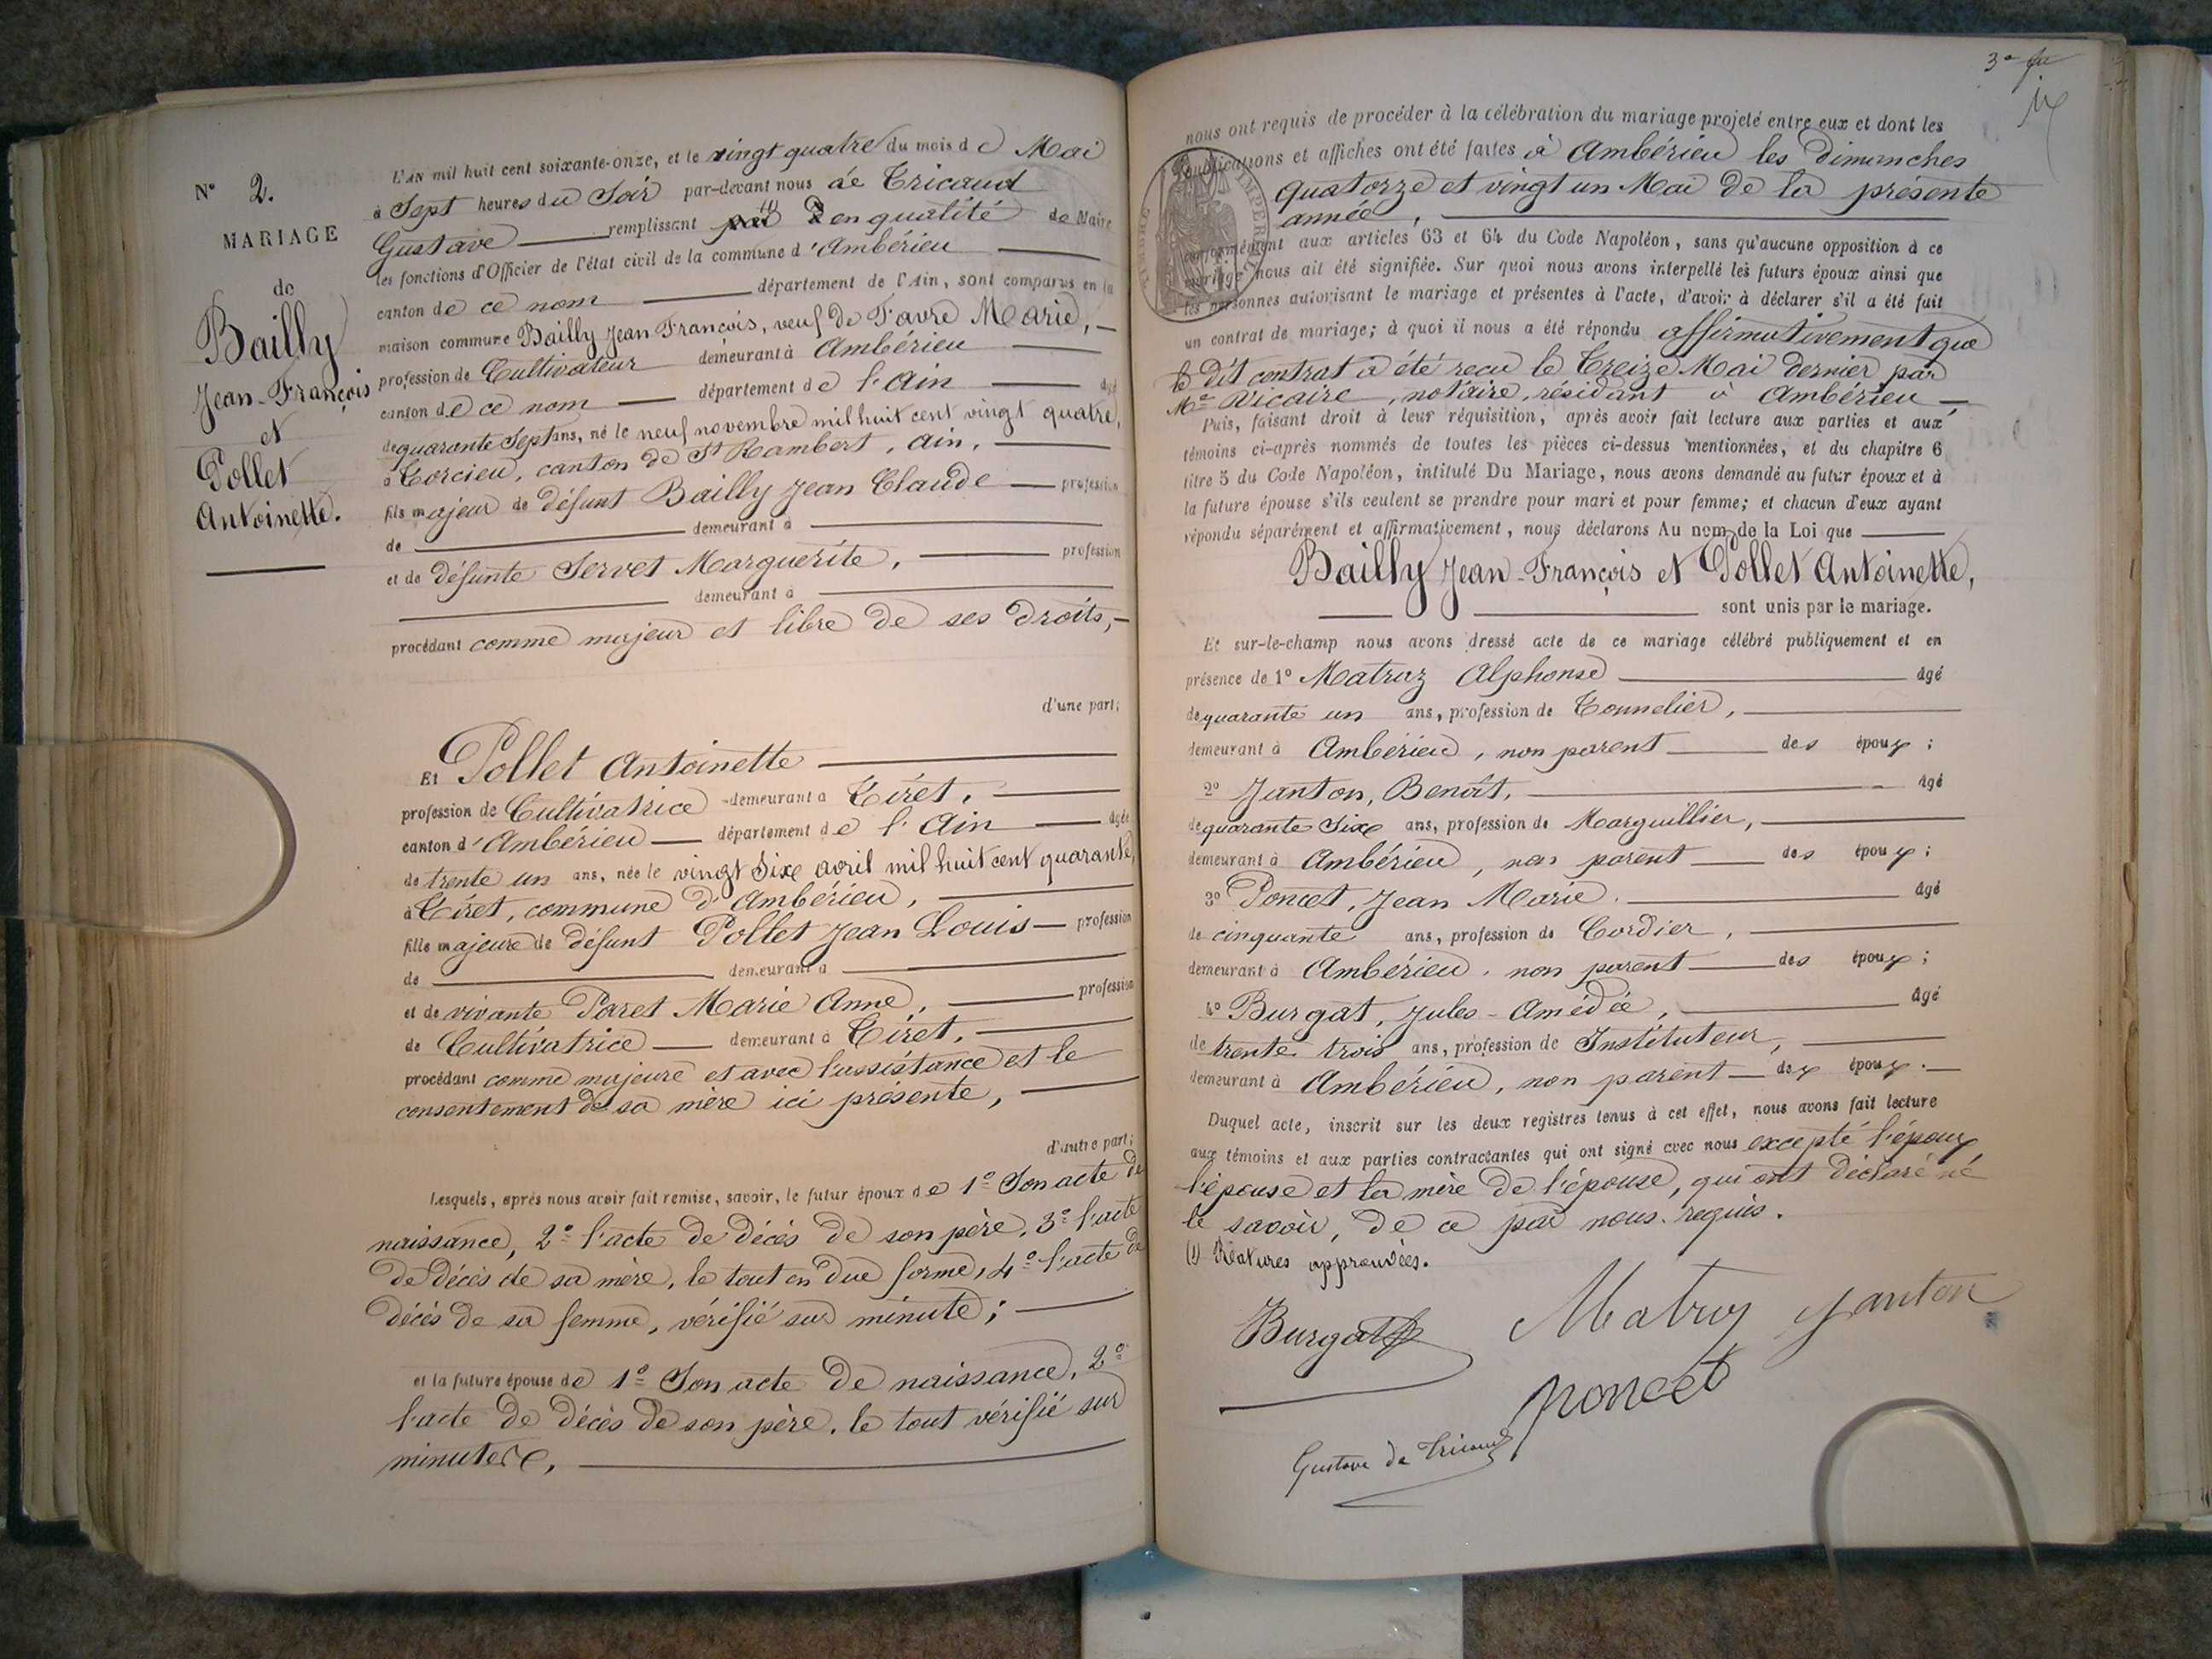 N° 2.
MARIAGE
de
Bailly
Jean-François
et
Pollet
Antoinette.
L'AN mil huit cent soixante-onze, et le vingt quatre du mois de Mai
à Sept heures du Soir par-devant nous de Tricaud
Gustave remplissant (1) en qualité de Maire
les fonctions d'Officier de l'état civil de la commune d'Ambérieu
canton de ce nom département de l'Ain, sont comparus en la
maison commune Bailly Jean-François, veuf de Favre Marie,
profession de Cultivateur demeurant à Ambérieu
canton de ce nom département de l'Ain âgé
de quarante Sept ans, né le neuf novembre mil huit cent vingt quatre,
à Torcieu, canton de St Rambert, Ain,
fils majeur de défunt Bailly Jean Claude profession
de demeurant à
et de défunte Servet Marguerite, profession
demeurant à
procédant comme majeur et libre de ses droits,
d'une part;
Et Pollet Antoinette
profession de Cultivatrice demeurant à Tiret,
canton d'Ambérieu département de l'Ain âgée
de trente un ans, née le vingt Six avril mil huit cent quarante,
à Tiret, commune d'Ambérieu,
fille majeure de défunt Pollet Jean Louis profession
de demeurant à
et de vivante Paret Marie Anne, profession
de Cultivatrice demeurant à Tiret,
procédant comme majeure et avec l'assistance et le
consentement de sa mère ici présente,
d'autre part;
Lesquels, après nous avoir fait remise, savoir, le futur époux de 1° Son acte de
naissance, 2° l'acte de décès de son père, 3° l'acte
de décès de sa mère, le tout en due forme, 4° l'acte de
décès de sa femme, vérifié sur minute;
et la future épouse de 1° Son acte de naissance, 2°
l'acte de décès de son père, le tout vérifié sur
minute,
3e
nous ont requis de procéder à la célébration du mariage projeté entre eux et dont les
publications et affiches ont été faites à Ambérieu les dimanches
quatorze et vingt un Mai de la présente
année,
conformément aux articles 63 et 64 du Code Napoléon, sans qu'aucune opposition à ce
mariage nous ait été signifiée. Sur quoi nous avons interpellé les futurs époux ainsi que
les personnes autorisant le mariage et présentes à l'acte, d'avoir à déclarer s'il a été fait
un contrat de mariage; à quoi il nous a été répondu affirmativement que
le dit contrat a été reçu le Treize Mai dernier par
Me Vicaire, notaire, résidant à Ambérieu
Puis, faisant droit à leur réquisition, après avoir fait lecture aux parties et aux
témoins ci-après nommés de toutes les pièces ci-dessus mentionnées, et du chapitre 6
titre 5 du Code Napoléon, intitulé Du Mariage, nous avons demandé au futur époux et à
la future épouse s'ils veulent se prendre pour mari et pour femme; et chacun d'eux ayant
répondu séparément et affirmativement, nous déclarons Au nom de la Loi que
Bailly Jean-François et Pollet Antoinette,
sont unis par le mariage.
Et sur-le-champ nous avons dressé acte de ce mariage célébré publiquement et en
présence de 1° Matruz Alphonse âgé
de quarante un ans, profession de Tonnelier,
demeurant à Ambérieu, non parent des époux;
2° Janton, Benoît, âgé
de quarante Six ans, profession de Marguillier,
demeurant à Ambérieu, non parent des époux;
3° Poncet, Jean Marie. âgé
de cinquante ans, profession de Cordier,
demeurant à Ambérieu, non parent des époux;
4° Burgat, Jules-Amédée, âgé
de trente trois ans, profession de Instituteur,
demeurant à Ambérieu, non parent des époux.
Duquel acte, inscrit sur les deux registres tenus à cet effet, nous avons fait lecture
aux témoins et aux parties contractantes qui ont signé avec nous excepté l'époux
l'épouse et la mère de l'épouse, qui ont déclaré ne
le savoir, de ce par nous requis.
(1) Ratures approuvées.
Burgat Matruz Janton
Poncet
Gustave de Tricaud